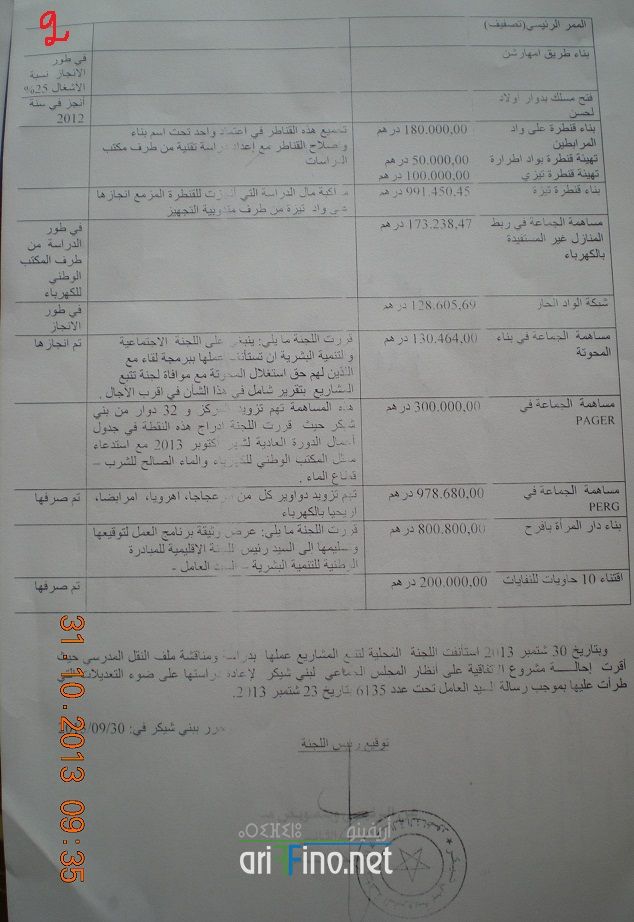 2
الممر الرئيسي(تصفيف)
بناء طريق امهارشن
في طور
الانجاز نسبة
الاشغال 25%
فتح مسلك بدوار اولاد
لحسن
أنجز في سنة
2012
بناء قنطرة على واد
المرابطين
180.000,00 درهم
تهيئة قنطرة بواد اطرارة
50.000,00 درهم
تهيئة قنطرة تيزي
100.000,00 درهم
تجميع هذه القناطر في اعتماد واحد تحت اسم بناء
وإصلاح القناطر مع إعداد دراسة تقنية من طرف مكتب
الدراسات
بناء قنطرة تيزة
991.450,45 درهم
مواكبة مال الدراسة التي أنجزت للقنطرة المزمع انجازها
على واد تيزة من طرف مندوبية التجهيز
مساهمة الجماعة في ربط
المنازل غير المستفيدة
بالكهرباء
173.238,47 درهم
في طور
الدراسة من
طرف المكتب
الوطني
للكهرباء
شبكة الواد الحار
128.605,69 درهم
في طور
الانجاز
مساهمة الجماعة في بناء
المحوتة
130.464,00 درهم
قررت اللجنة ما يلي: ينبغي على اللجنة الاجتماعية
والتنمية البشرية ان تستأنف عملها ببرمجة لقاء مع
اللذين لهم حق استغلال المحوتة مع موافاة لجنة تتبع
المشاريع بتقرير شامل في هذا الشأن في اقرب الآجال .
تم انجازها
مساهمة الجماعة في
PAGER
300.000,00 درهم
هذه المساهمة تهم تزويد المركز و 32 دوار من بني
شيكر حيث قررت اللجنة ادراج هذه النقطة في جدول
أعمال الدورة العادية لشهر أكتوبر 2013 مع استدعاء
ممثل المكتب الوطني للكهرباء والماء الصالح للشرب –
قطاع الماء .
مساهمة الجماعة في
PERG
978.680,00 درهم
تهم تزويد دواوير كل من اعجاجا، اهرويا، امرابضا،
ازيحيا بالكهرباء
تم صرفها
بناء دار المرأة بافرح
800.800,00 درهم
قررت اللجنة ما يلي: عرض وثيقة برنامج العمل لتوقيعها
وتسليمها إلى السيد رئيس اللجنة الاقليمية للمبادرة
الوطنية للتنمية البشرية – السيد العامل -
اقتناء 10 حاويات للنفايات
200.000,00 درهم
تم صرفها
وبتاريخ 30 شتمبر 2013 استأنفت اللجنة المحلية لتتبع المشاريع عملها بدراسة ومناقشة ملف النقل المدرسي حيث
أقرت إحالة مشروع الاتفاقية على أنظار المجلس الجماعي لبني شيكر لإعادة دراستها على ضوء التعديلات التي
طرأت عليها بموجب رسالة السيد العامل تحت عدد 6135 بتاريخ 23 شتمبر 2013.
حرر ببني شيكر في: 2013/09/30
توقيع رئيس اللجنة
31.10.2013 09:35
أريفينو
ariFino.net